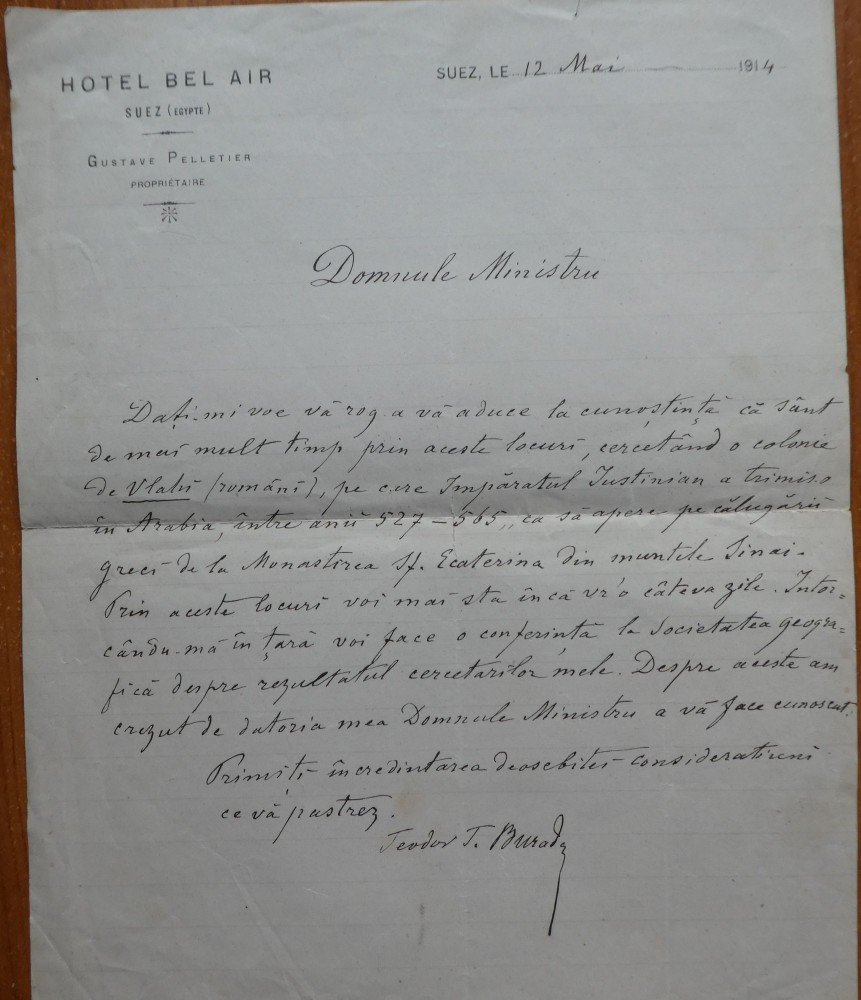 HOTEL BEL AIR
SUEZ (EGYPTE)
GUSTAVE PELLETIER
PROPRIÉTAIRE
SUEZ, LE 12 Mai 1914
Domnule Ministru
Daţi-mi voe vă rog a vă aduce la cunoştinţă că sânt
de mai mult timp prin aceste locuri, cercetând o colonie
de Vlahi (români), pe care Împăratul Iustinian a trimis-o
în Arabia, între anii 527-565, ca să apere pe călugării
greci de la Monastirea Sf. Ecaterina din muntele Sinai.
Prin aceste locuri voi mai sta încă vr'o câteva zile. Întor=
cându-mă în ţară voi face o conferinţă la Societatea geogra=
fică despre rezultatul cercetarilor mele. Despre aceste am
crezut de datoria mea Domnule Ministru a vă face cunoscut.
Primiţi încredintarea deosebitei consideratiuni
ce vă pastrez.
Teodor T. Burada